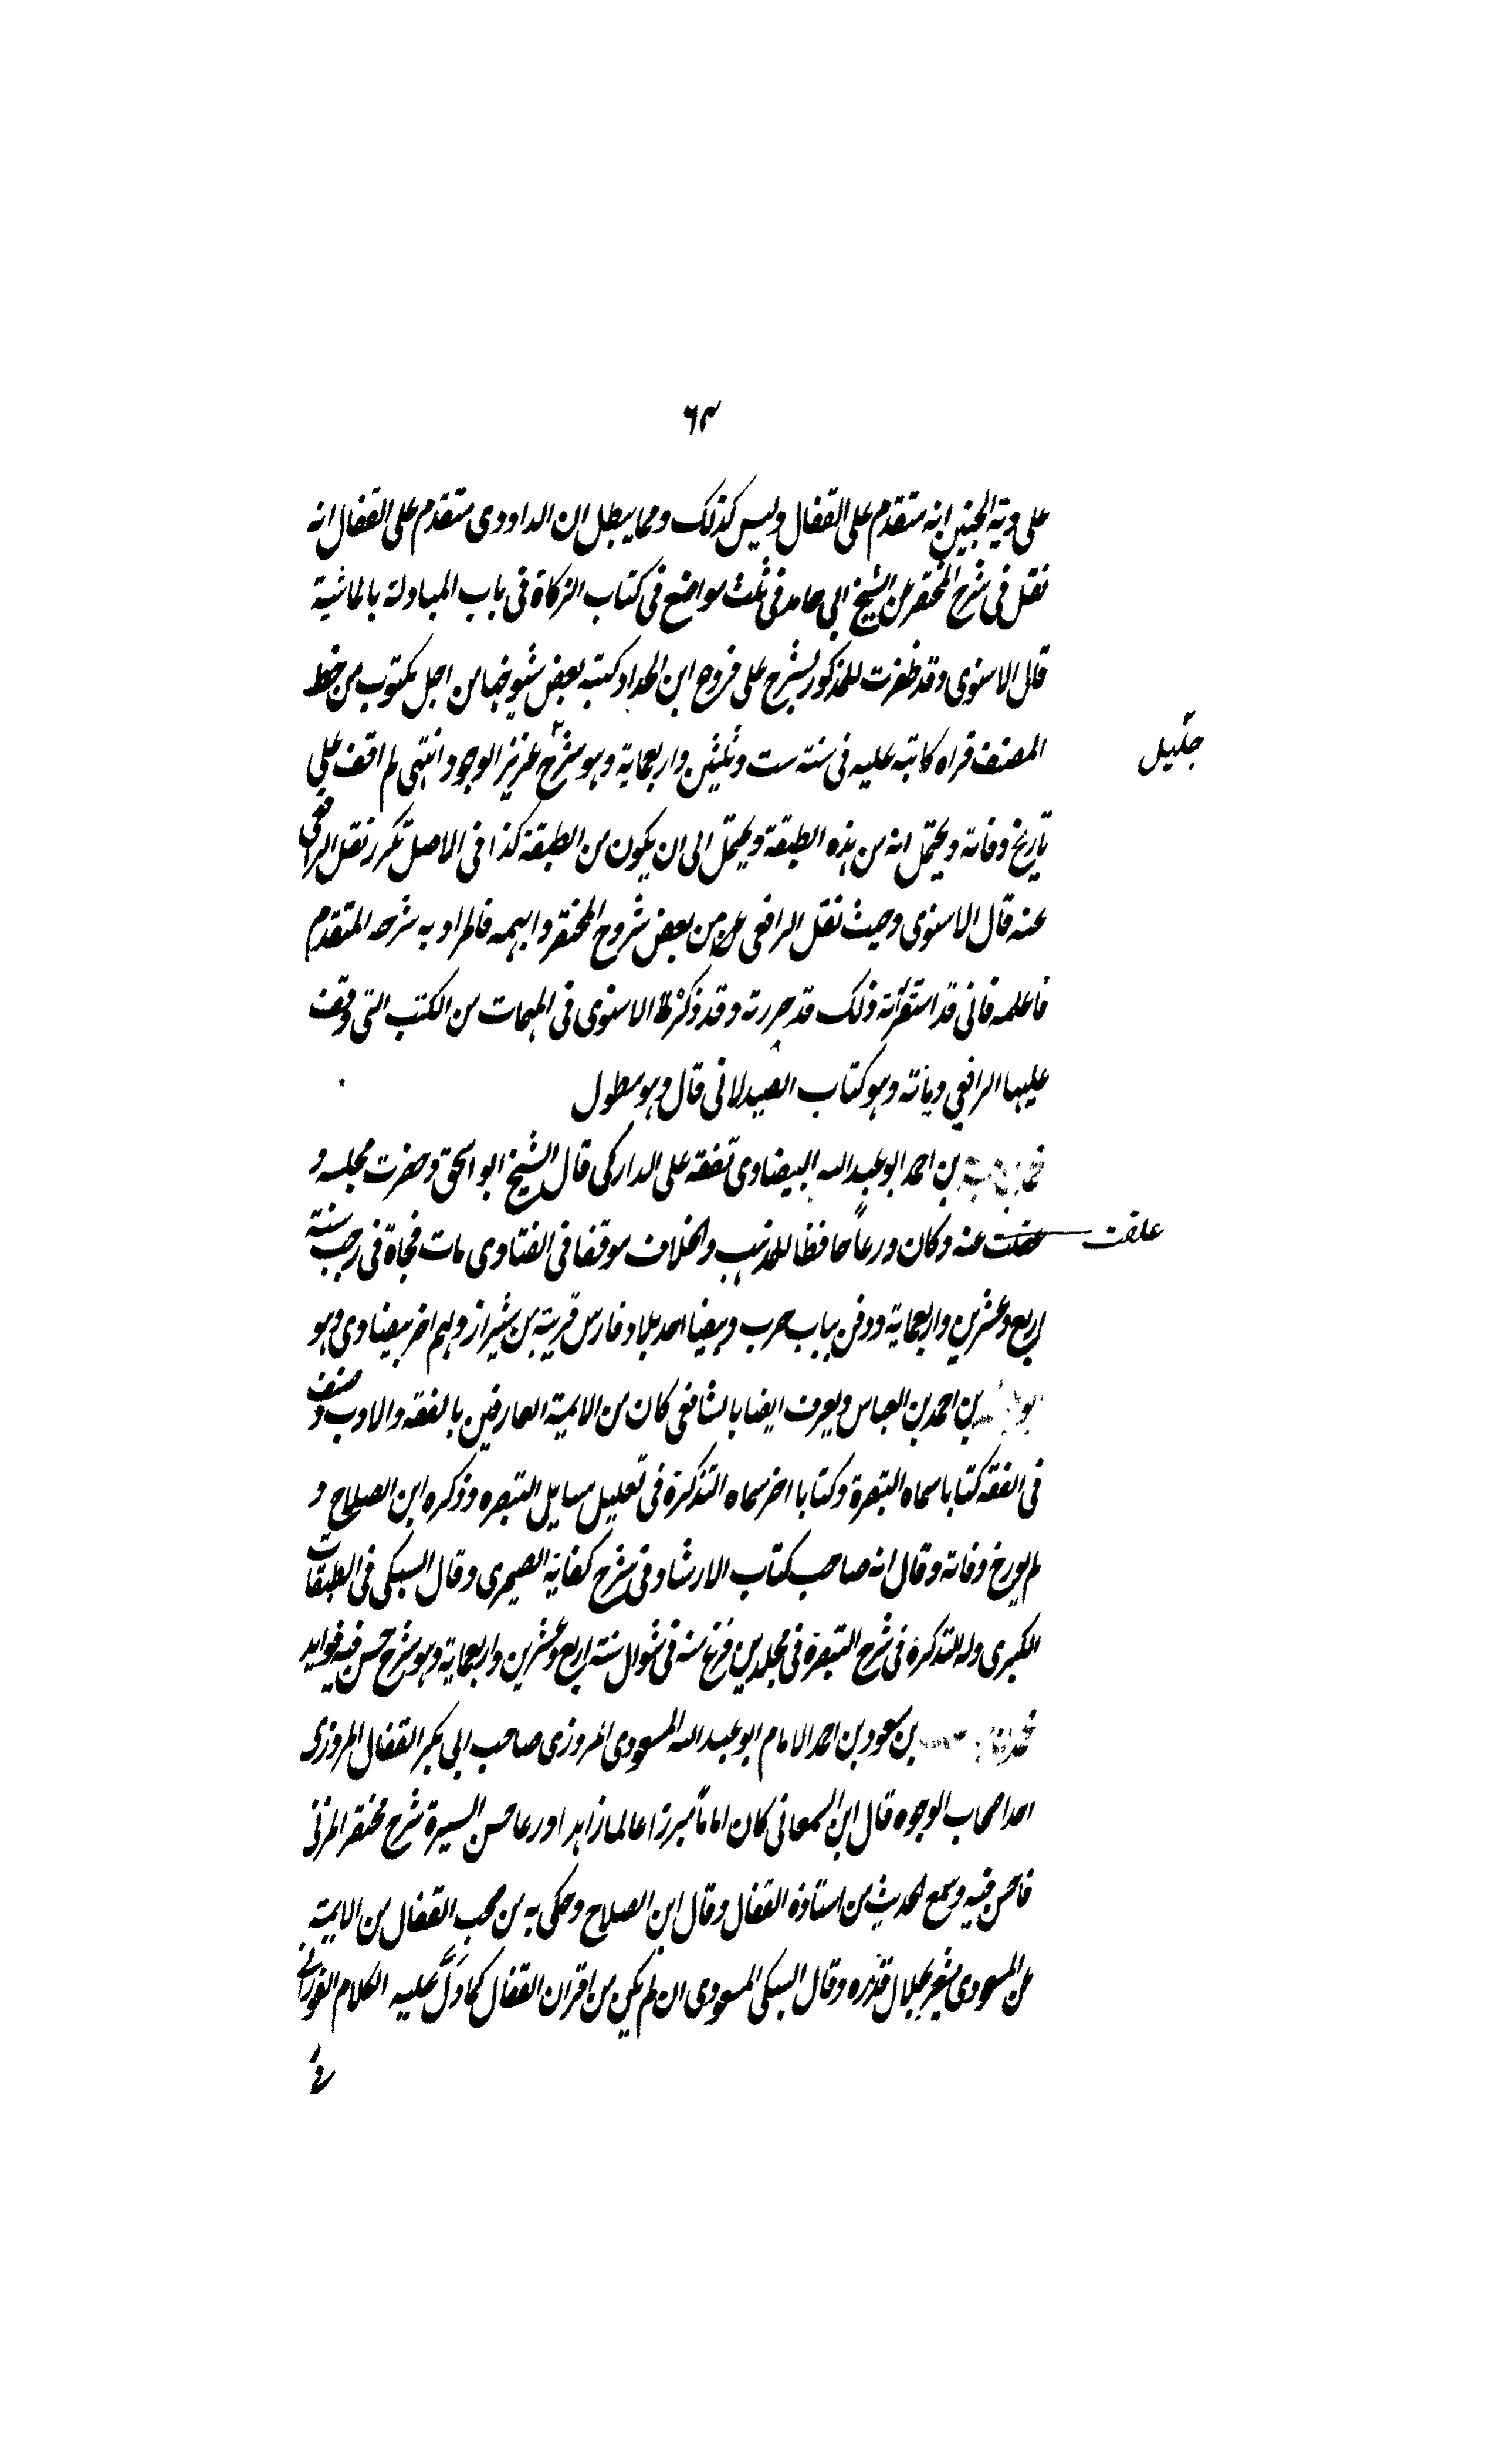 ٦٣
على دية الجنين انه متقدم على القفال وليس كذلك ومما يبطل ان الداودى متقدم على القفال انه
نقل فى شرح المختصر عن الشيخ ابى حامد فى ثلث مواضع فى كتاب الزكاة فى باب المبادلة بالماشية
قال الاسنوى وقد ظفرت للمذكور بشرح على فروع ابن الحداد كتبه بعض شيوخنا من اصل مكتوب من خط
المصنف قراه كاتبه عليه فى سنة ست وثلثين واربعماية وهو شرح عزيز الوجود انتهى لم اقف على
جليل
تاريخ وفاته ويحتمل انه من هذه الطبقة ويحتمل الى ان يكون من الطبقة كذا فى الاصل تكرر نقل الرافعى
عنه قال الاسنوى وحيث نقل الرافعى عن من بعض شروح المختصر وابهمه فالمراد به شرحه المتقدم
فاعلمه فانى قد استقرأته ذلك قد حررته وقد ذكر الاسنوى فى المهمات من الكتب التى وقف
عليها الرافعى وهو كتاب الصيدلانى قال وهو مطول
بن احمد ابو عبد الله البيضاوى تفقه على الداركى قال الشيخ ابو اسحق وحضرت مجلسه و
علقت عنه وكان ورعاً حافظا للمذهب والخلاف موفقا فى الفتاوى مات فجاة فى رجب سنة
اربع وعشرين واربعماية ودفن بباب حرب وبيضا احد بلاد فارس قريبة من شيراز ولهم اخر بيضاوى وهو
بن احمد بن العباس ويعرف ايضا بالشافعى كان من الايمة العارفين بالفقه والادب وصنف
فى الفقه كتابا سماه التبصرة وكتابا اخر سماه التذكرة فى تعليل مسايل التبصره وذكره ابن الصلاح و
لم يورخ وفاته وقال انه صاحب كتاب الارشاد فى شرح كفاية الصيمرى وقال السبكى فى الطبقات
الكبرى وله التذكرة فى شرح التبصرة فى مجلدين فرغ منه فى شوال سنة اربع وعشرين واربعماية وهو شرح حسن فيه فوايد
بن مسعود بن احمد الامام ابو عبد الله المسعودى المروزى صاحب ابى بكر القفال المروزى
احد اصحاب الوجوه قال ابن السمعانى كان اماماً مبرزا عالما زاهدا ورعا حسن السيرة شرح مختصر المزنى
فاحسن فيه وسمع الحديث من استاذه القفال وقال ابن الصلاح وحكى به من صحب القفال من الايمة
عن المسعودى يشعر بجلال قدره وقال السبكى المسعودى ان لم يكن من اقران القفال كما دَلَّ عليه الكلام الفورانى